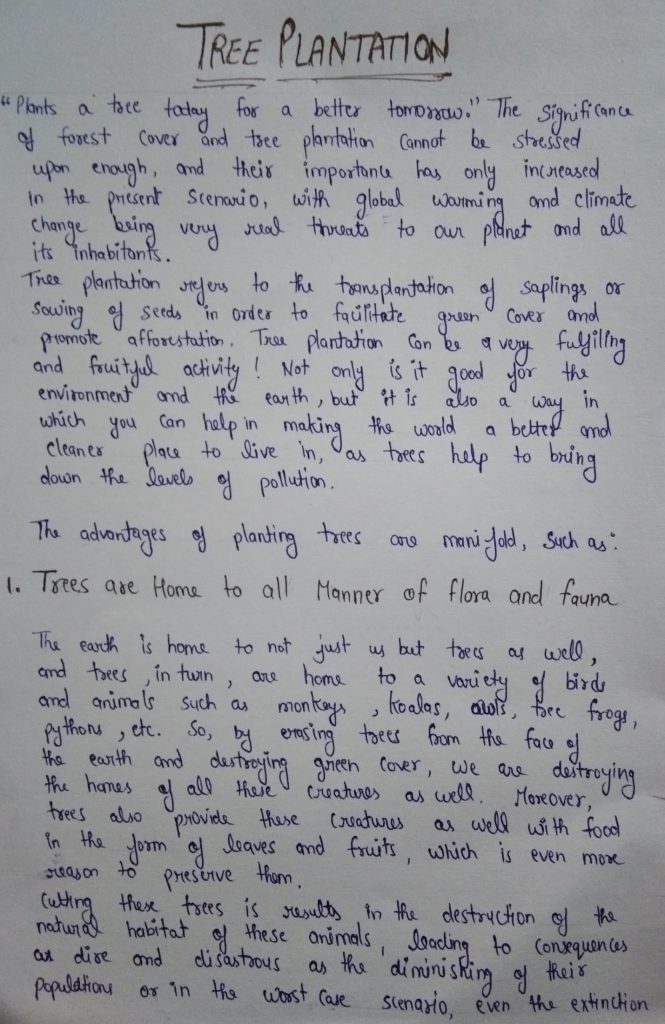 TREE PLANTATION
"Plants a tree today for a better tomorrow." The significance
of forest cover and tree plantation cannot be stressed
upon enough, and their importance has only increased
in the present scenario, with global warming and climate
change being very real threats to our planet and all
its inhabitants.
Tree plantation refers to the transplantation of saplings or
sowing of seeds in order to facilitate green cover and
promote afforestation. Tree plantation can be a very fulfiling
and fruitful activity! Not only is it good for the
environment and the earth, but it is also a way in
which you can help in making the world a better and
cleaner place to live in, as trees help to bring
down the levels of pollution.
The advantages of planting trees are manifold, such as:
1. Trees are Home to all Manner of flora and fauna
The earth is home to not just us but trees as well,
and trees, in turn, are home to a variety of birds
and animals such as monkeys, koalas, owls, tree frogs,
pythons, etc. So, by erasing trees from the face of
the earth and destroying green cover, we are destroying
the homes of all these creatures as well. Moreover,
trees also provide these creatures as well with food
in the form of leaves and fruits, which is even more
reason to preserve them.
Cutting these trees is results in the destruction of the
natural habitat of these animals, leading to consequences
as dire and disastrous as the diminishing of their
populations or in the worst case scenario, even the extinction